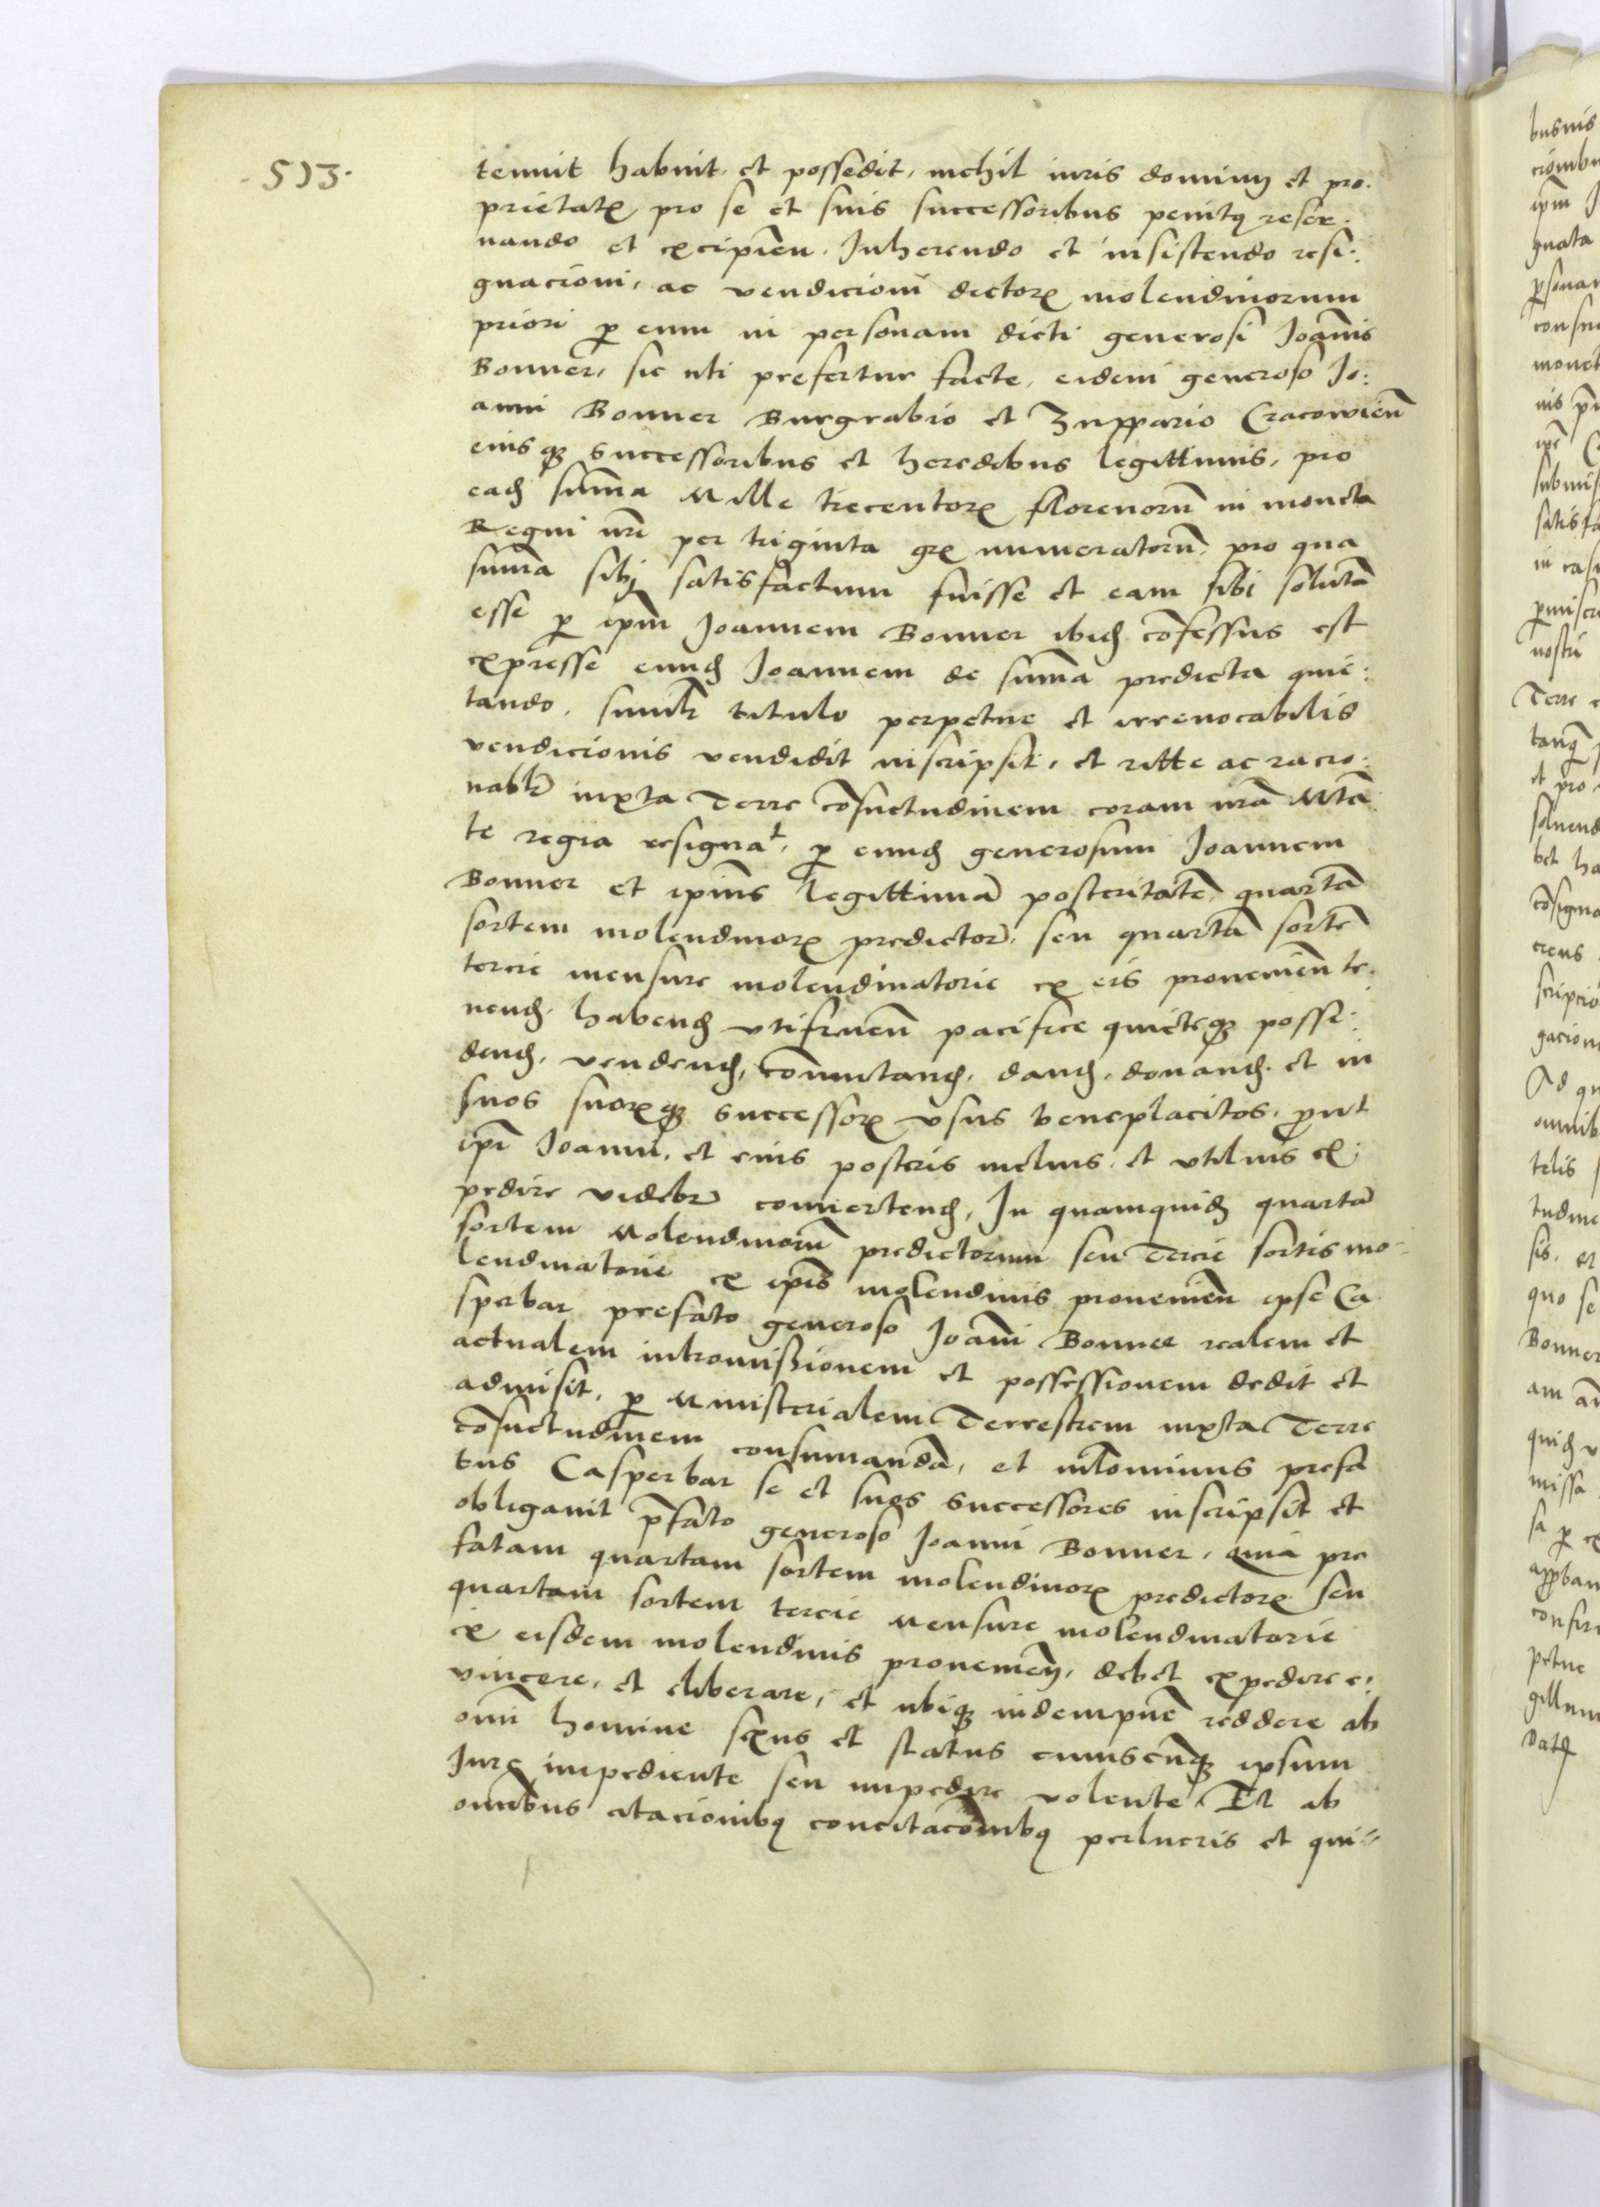 ·513·
tenuit habuit et possedit, nichil iuris dominij et pro.
prietatꝭ pro se et suis successoribus penitꝰ reser.
uando et excipieñ. Inherendo et insistendo resi:
gnacioni, ac vendicioni dictorꝝ molendinorum
priori ꝑ eum in personam dicti generosi Ioañis
Bonner, sic uti prefertur facte, eidem generoso Io:
anni Bonner Burgrabio et Zuppario Cracowieñ
eiusqꝫ successoribus et heredibus legittimis, pro
eadꝫ suṁa Mille trecentorꝝ florenorū in moneta
Regni nrī per triginta grꝭ numeratorū, pro qua
suṁa sibj satisfactum fuisse et eam sibi solutā
esse ꝑ ipm̄ Joannem Bonner ibidꝫ cōfessus est
expresse eundꝫ Joannem de suṁa predicta quie:
tando. similr̄ titulo perpetue et irreuocabilis
vendicionis vendidit inscripsit, et ritte ac racio:
nablr̄ iuxta Terre cōsuetudinem coram nrā Mtā
te regia resignaᵗ, ꝑ eundꝫ generosum Joannem
Bonner et ipius legittimā posteritatē quartā
sortem molendinorꝝ predictorꝝ, seu quartā sortē
tercie mensure molendinatorie ex eis prouenieñ te.
nendꝫ habendꝫ vtifrueñ pacifice quieteqꝫ possi:
dendꝫ, vendendꝫ, cōmutandꝫ, dandꝫ, donandꝫ et in
suos suorꝝqꝫ successorꝝ vsus beneplacitos, ꝓut
ipī Joanni, et eius posteris melius et vtilius ex
pedire videbr̄ conuertendꝫ, In quamquidꝫ quartā
sortem Molendinorū predictorum seu Tercie sortis mo-
lendinatorie ex ipīs molendinis prouenieñ ipse Ca
sperbar prefato generoso Joañi Bonner realem et
actualem intromissionem et possessionem dedit et
admisit, ꝑ Ministerialem Terrestrem iuxta Terre
cōsuetudinem consumandā, et nilominus prefa
tus Casperbar se et suos successores inscripsit et
obligauit p̄fato generoso Joanni Bonner, quia pre
fatam quartam sortem molendinorꝝ predictorꝝ seu
quartam sortem tercie Mensure molendinatorie
ex eisdem molendinis prouenieñ, debet expedire e:
uincere, et eliberare, et ubiqꝫ indempnē reddere ab
oṁi homine sexus et status cuiuscunqꝫ ipsum
Jure impediente seu impedire volente. Et ab
omībus citacionibꝰ concitacōnibꝰ perlucris et qui-